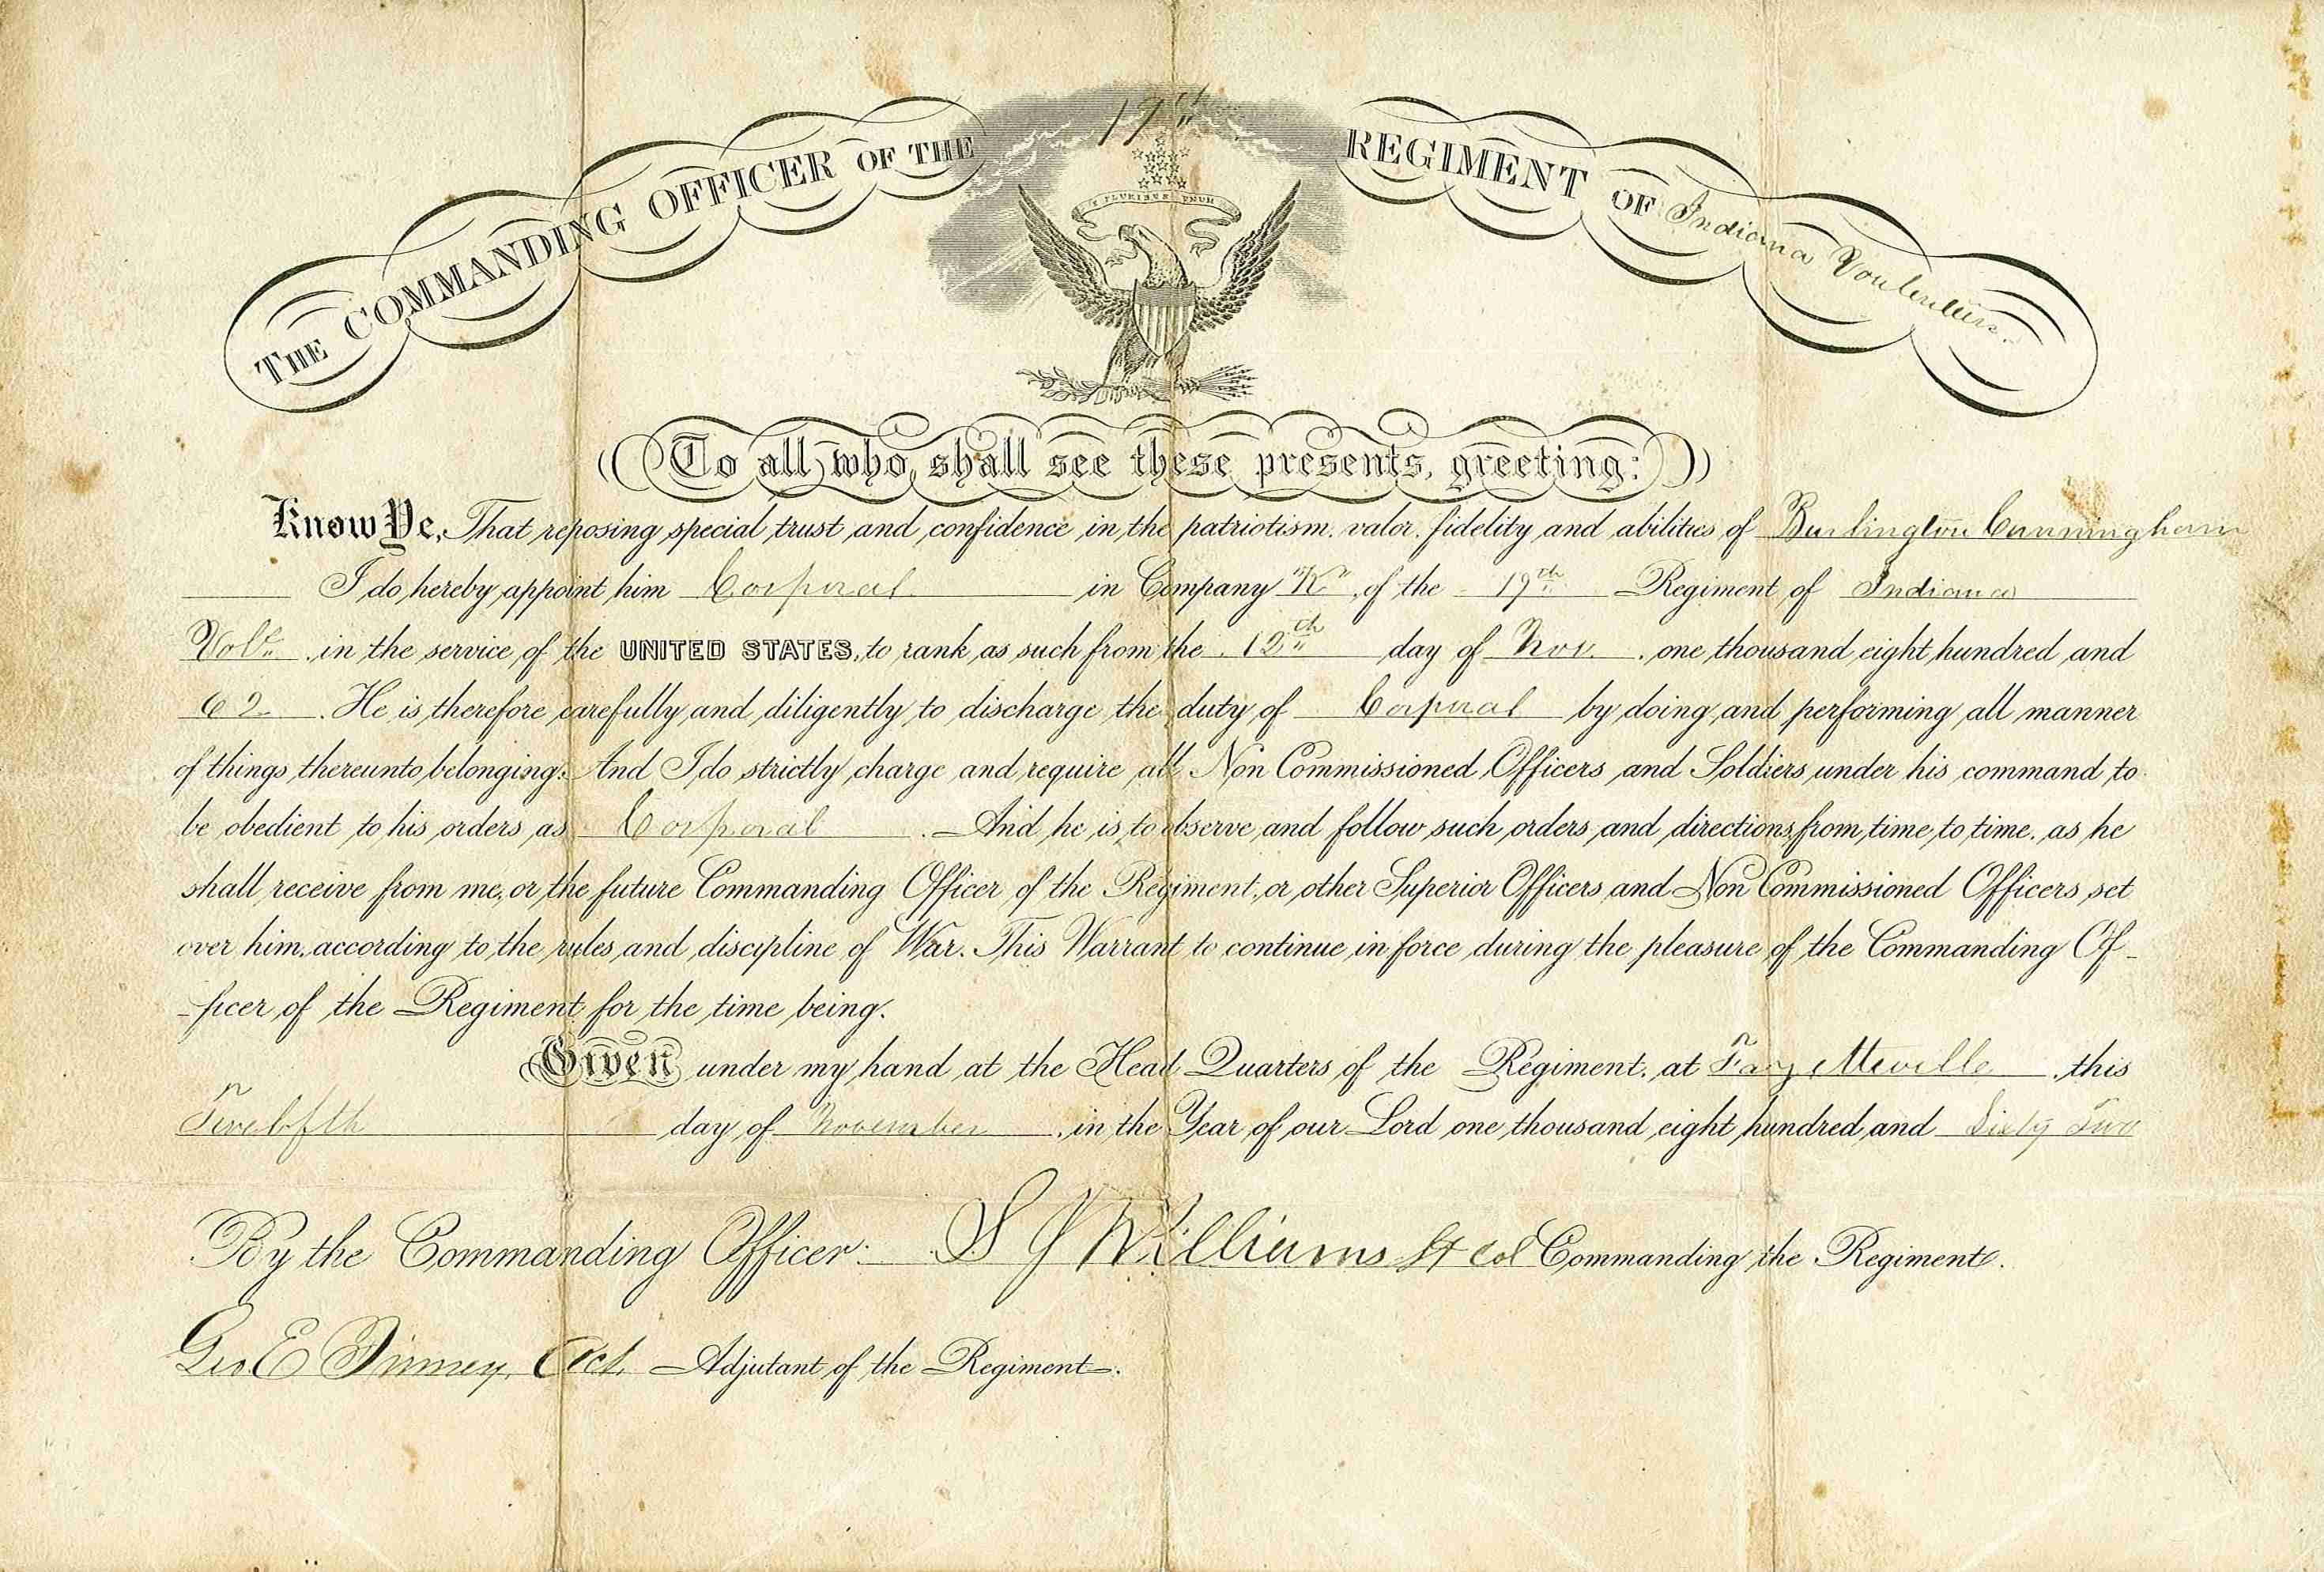 THE COMMANDING OFFICER OF THE 19th REGIMENT OF Indiana Voulenteers.
E PLURIBUS UNUM
To all who shall see these presents, greeting:
Know Ye, That reposing special trust and confidence in the patriotism, valor, fidelity and abilities of Burlington Cunningham
I do hereby appoint him Corporal in Company "K" of the 19th Regiment of Indiana
Vols. in the service of the UNITED STATES, to rank as such from the 12th day of Nov. one thousand eight hundred and
62. He is therefore carefully and diligently to discharge the duty of Corporal by doing and performing all manner
of things thereunto belonging. And I do strictly charge and require all Non Commissioned Officers and Soldiers under his command to
be obedient to his orders as Corporal. And he is to observe and follow such orders and directions from time to time, as he
shall receive from me, or the future Commanding Officer of the Regiment, or other Superior Officers and Non Commissioned Officers set
over him, according to the rules and discipline of War. This Warrant to continue in force during the pleasure of the Commanding Of-
-ficer of the Regiment for the time being.
Given under my hand at the Head Quarters of the Regiment, at Fay this
Twelfth day of November in the Year of our Lord one thousand eight hundred and Sixty Two
By the Commanding Officer: S J Williams Lt Col Commanding the Regiment.
Geo. E Finney, Act. Adjutant of the Regiment.